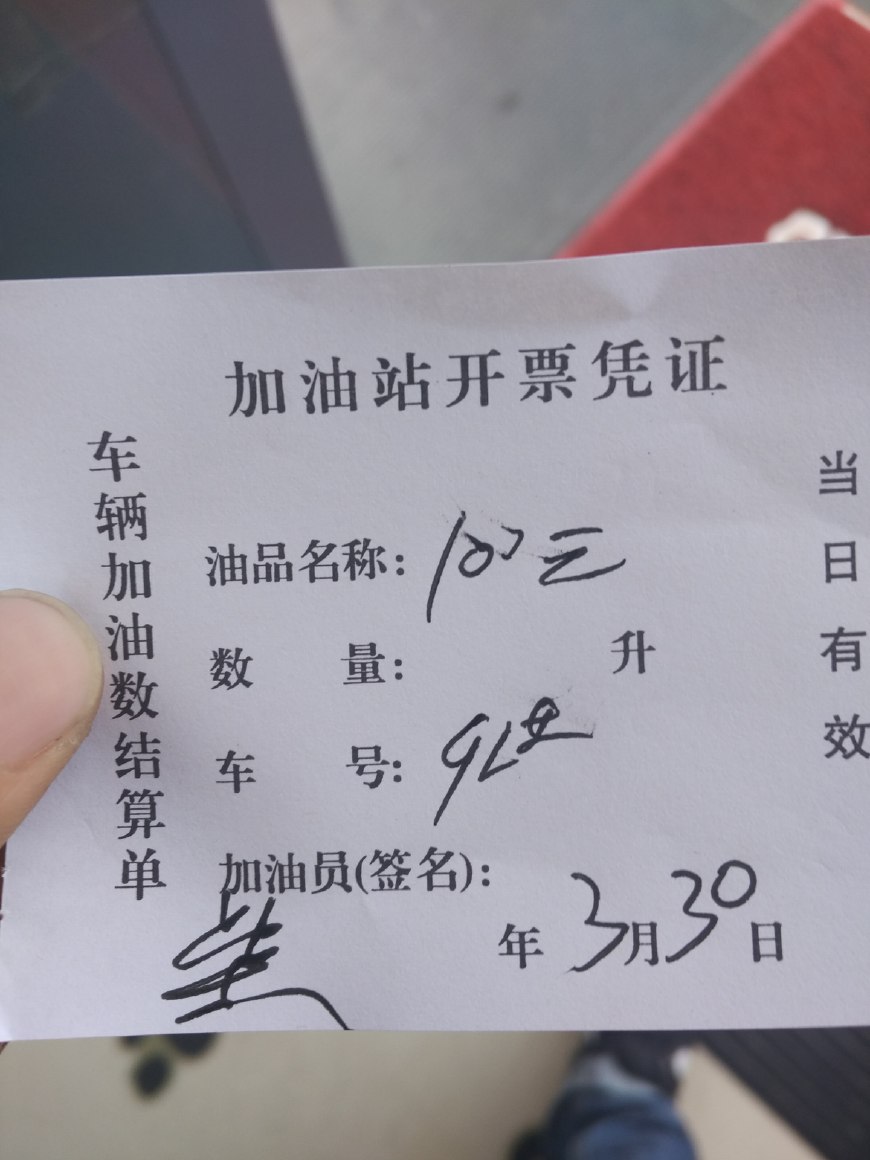 加油站开票凭证
车辆加油数结算单
油品名称：100元
数 量： 升
车 号：92#
加油员(签名)：
年 3月30日
当日有效